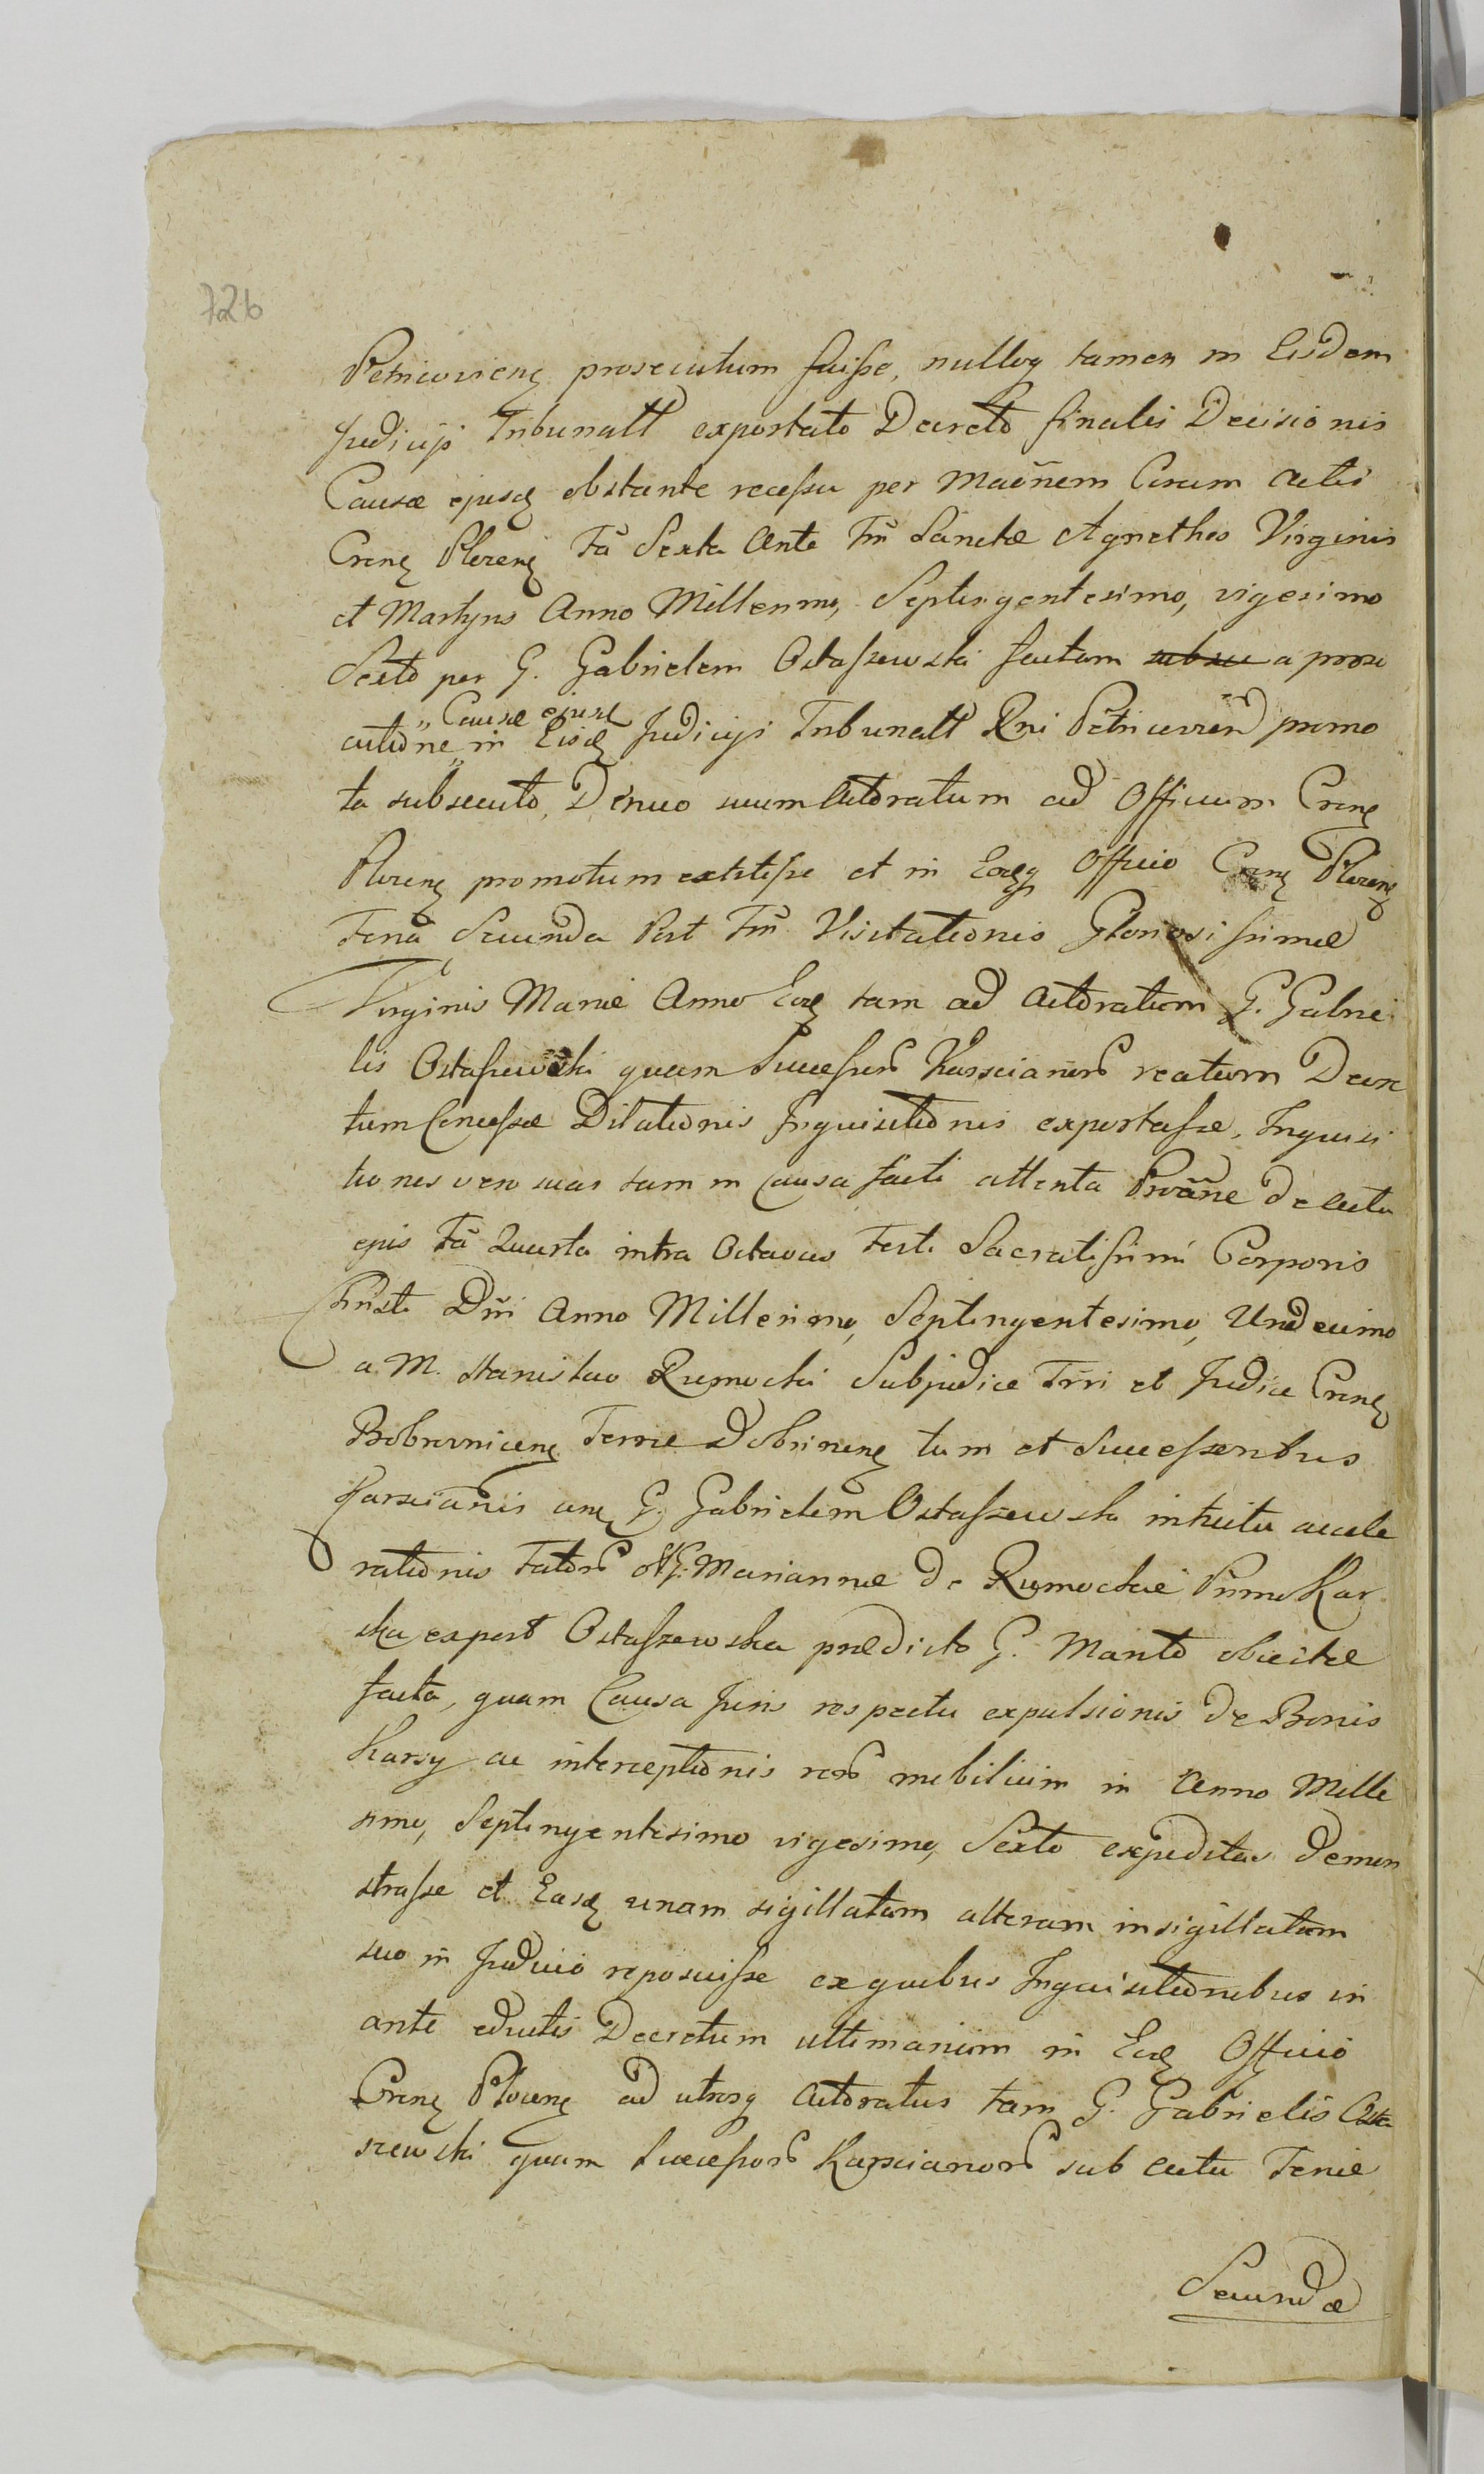 726
Petricoviens prosecutum fuisse, nullog tamen in Eisdem
Judicijs Tribunall exportato Decreto finalis Decisionis
Causæ ejusd obstante recessu per Maõnem Coram Actis
Crens Plocens Fã Sexta Ante Fm̃ Sanctæ Agnethes Virginis
et Martyris Anno Millesimo, Septingentesimo, vigesimo
Sexto per G. Gabrielem Ostaszewski factam a prose
„Causæ ejusd
cutione„ in Eisd Judicijs Tribunall Rni Petricovien promo
ta subsecuto, Denuo suum Actoratum ad Officium Crens
Plocens promotum extitisse et in Eodq Officio Crens Plocens
Feria Secunda Post Fm̃ Visitationis Gloriosissimæ
Virginis Mariæ Anno Eod tam ad Actoratum G. Gabrie
lis Ostaszewski quam Successor Karscianor reatum Decre
tum Concessæ Dilationis Inquisitionis exportasse, Inquisi
tiones vero suas tam in Causa facti attenta Protãne de actu
ejus Fã Quarta intra Octavas Festi Sacratissimi Corporis
Christi Dñi Anno Millesimo, Septingentesimo, Undecimo
a M. Stanislao Rumocki Subjudice Trri et Judice Crens
Bobrovnicens Terræ Dobrinens tum et Successoribus
Karscianis ants G. Gabrielem Ostaszewski intuitu accele
rationis Fator olG. Mariannæ de Rumockie Primo Kar
ska expost Ostaszewska prædicto G. Marito obiectæ
facta, quam Causa Juris respectu expulsionis de Bonis
Karsy ac interceptionis rer mobilium in Anno Mille
simo, Septingentesimo vigesimo, Sexto expeditas demon
strasse et Easd unam sigillatam alteram insigillatam
suo in Judicio reposuisse ex quibus Inquisitionibus in
ante eductis Decretum ultimarium in Eod Officio
Crens Plocens ad utrosq Actoratus tam G. Gabrielis Osta
szewski quam Successor Karscianor sub actu Feriæ
Secundæ